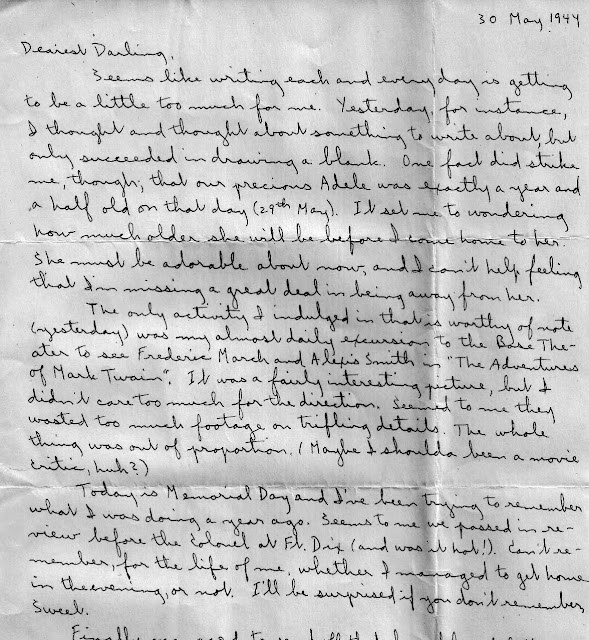 30 May 1944
Dearest Darling,
Seems like writing each and every day is getting
to be a little too much for me. Yesterday, for instance,
I thought and thought about something to write about, but
only succeeded in drawing a blank. One fact did strike
me, though; that our precious Adele was exactly a year and
a half old on that day (29th May). It set me to wondering
how much older she will be before I come home to her.
She must be adorable about now, and I can't help feeling
that I'm missing a great deal in being away from her.
The only activity I indulged in that is worthy of note
(yesterday) was my almost daily excursion to the Base The-
ater to see Frederic March and Alexis Smith in "The Adventures
of Mark Twain". It was a fairly interesting picture, but I
didn't care too much for the direction. Seemed to me they
wasted too much footage on trifling details. The whole
thing was out of proportion. (Maybe I shoulda been a movie
critic, huh?)
Today is Memorial Day and I've been trying to remember
what I was doing a year ago. Seems to me we passed in re-
view before the Colonel at Ft. Dix (and was it hot!). Can't re-
member, for the life of me, whether I managed to get home
in the evening, or not. I'll be surprised if you don't remember,
Sweet.
Finally